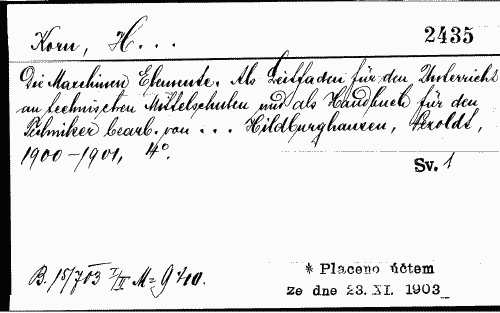 Korn, H...
2435
Die Maschinen Elemente. Als Leitfaden für den Unterricht
an technischen Mittelschulen und als Handbuch für den
Techniker bearb. von ... Hildburghausen, Pezoldt,
1900-1901, 4°.
Sv. 1
B. 15/703 I/II M=9
* Placeno účtem
ze dne 23. XI. 1903